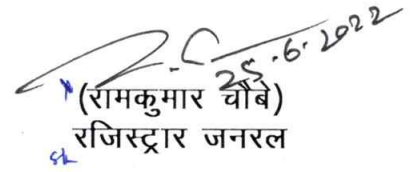 25.6.2022
(रामकुमार चौबे)
रजिस्ट्रार जनरल